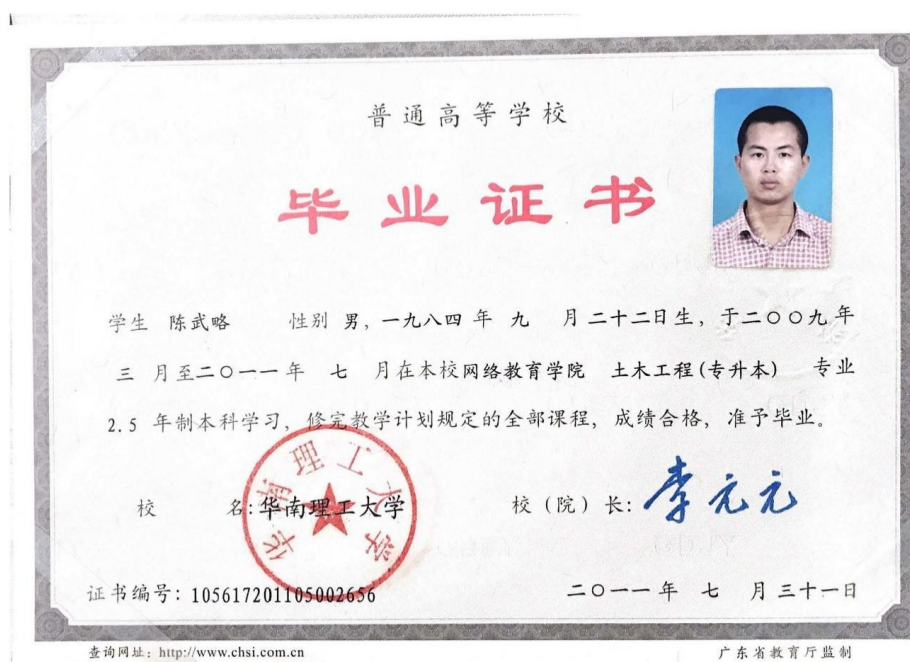 普通高等学校
毕业证书
学生 陈武略 性别 男，一九八四 年 九 月 二十二日生，于二〇〇九年
三 月至二〇一一年 七 月在本校网络教育学院 土木工程(专升本) 专业
2.5 年制本科学习，修完教学计划规定的全部课程，成绩合格，准予毕业。
校 名：华南理工大学 校（院）长：李元元
华南理工大学
证书编号：105617201105002656 二〇一一年 七 月 三十一日
查询网址：http://www.chsi.com.cn 广东省教育厅监制